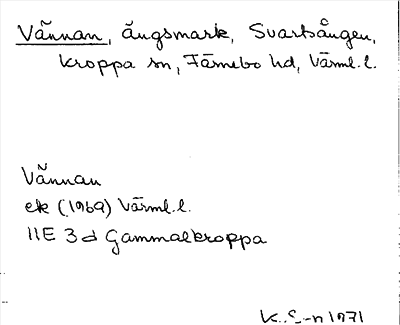 Vännan, ängsmark, Svartsången,
Kroppa sn, Färnebo hd, Värml. l.
Vännan
ek (1969) Värml. l.
11E 3d Gammalkroppa
1971